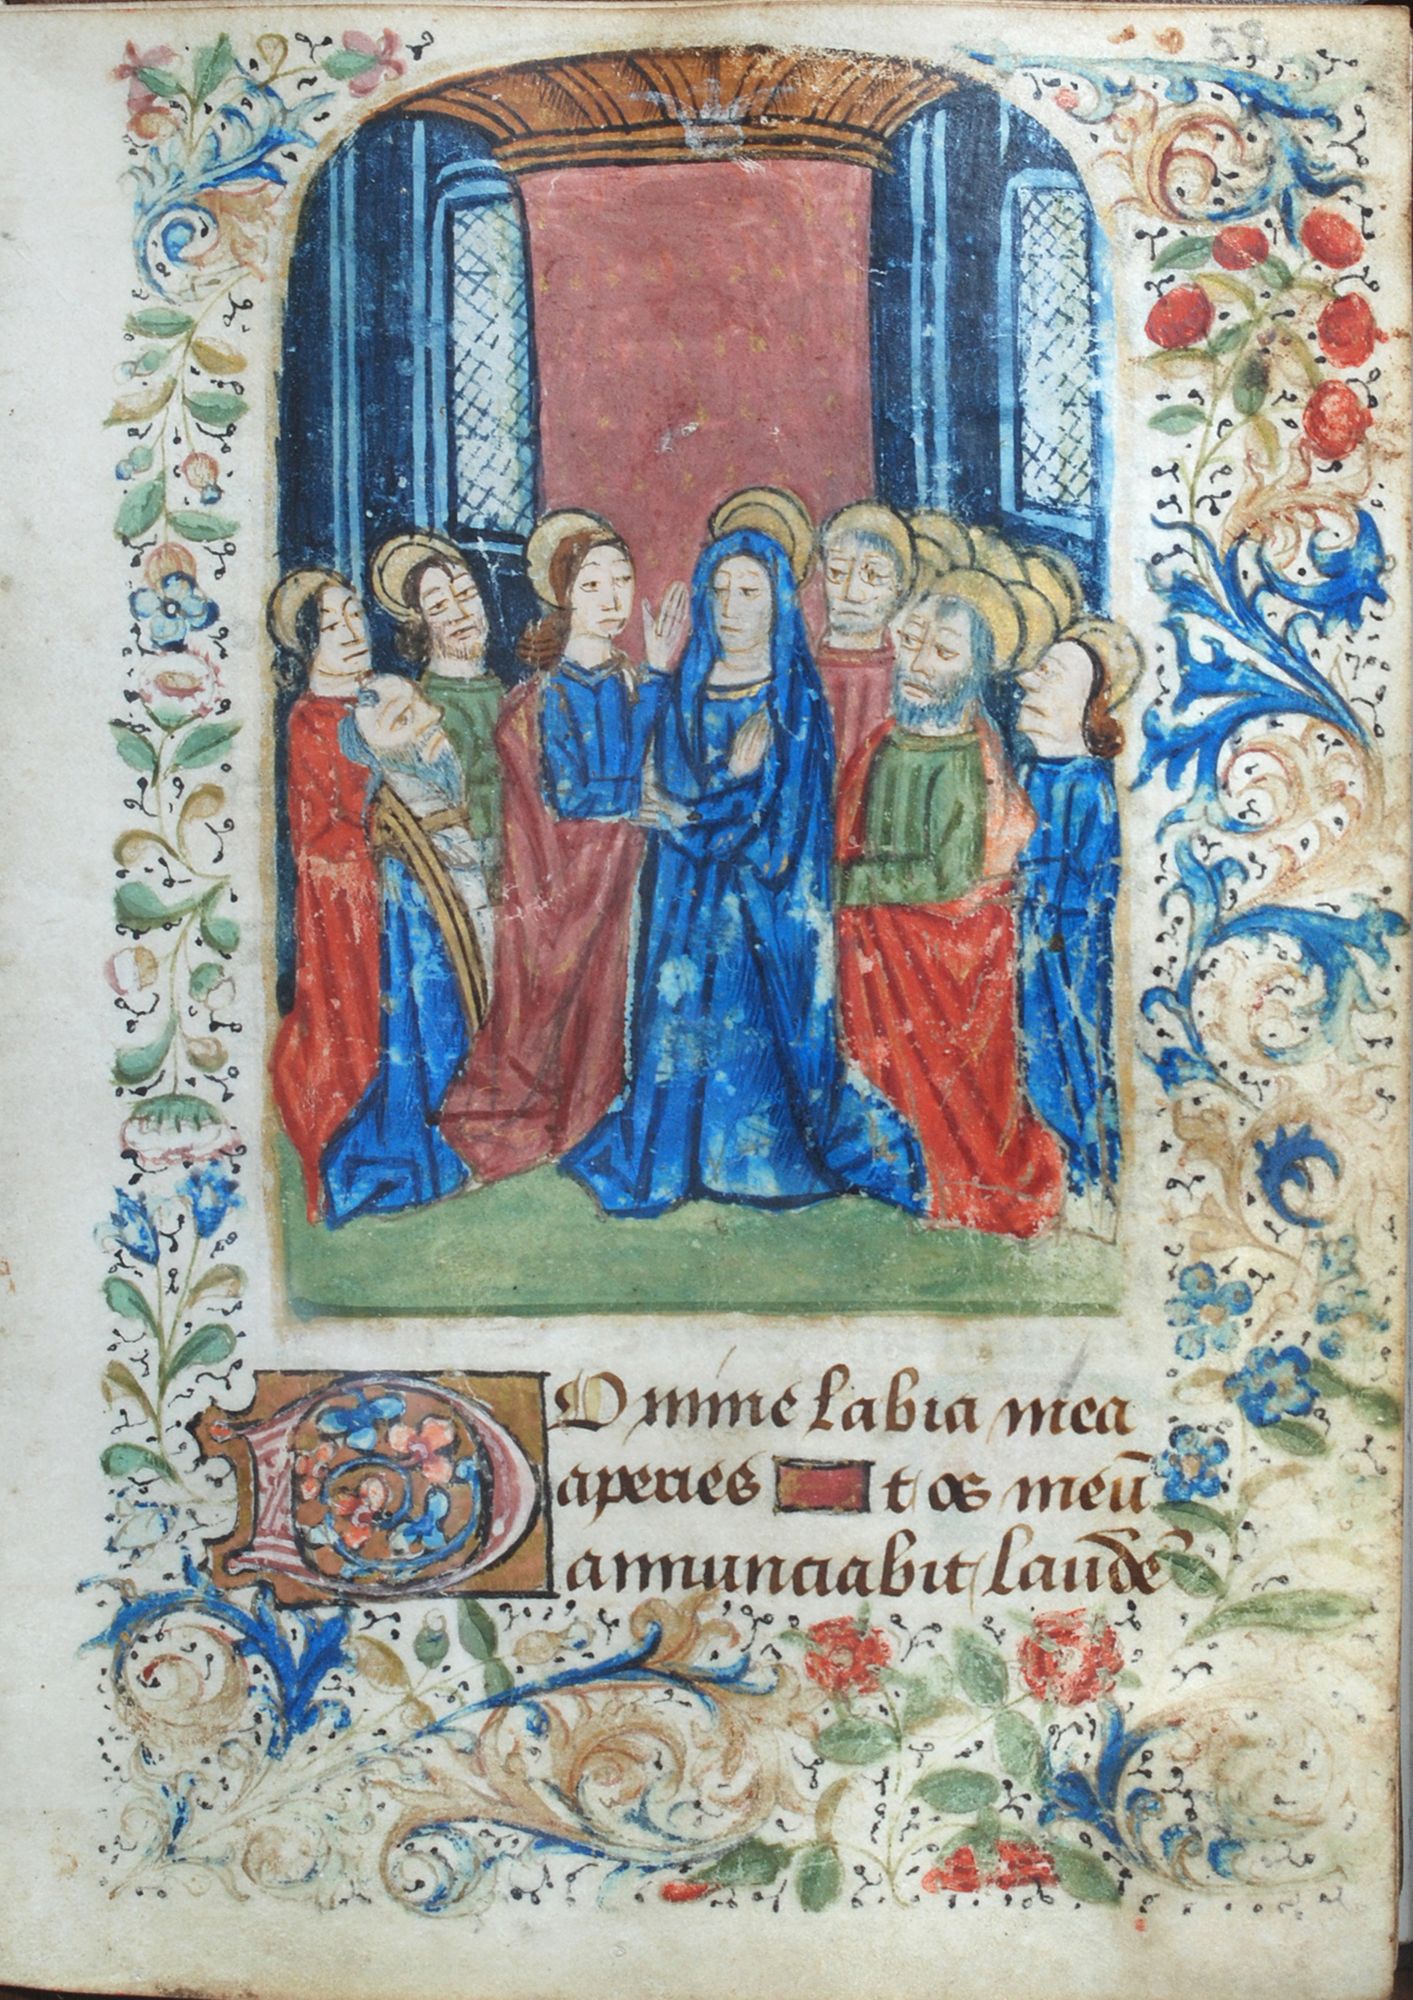 DOmine labia mea
aperies t os meū
annunciabit laudē